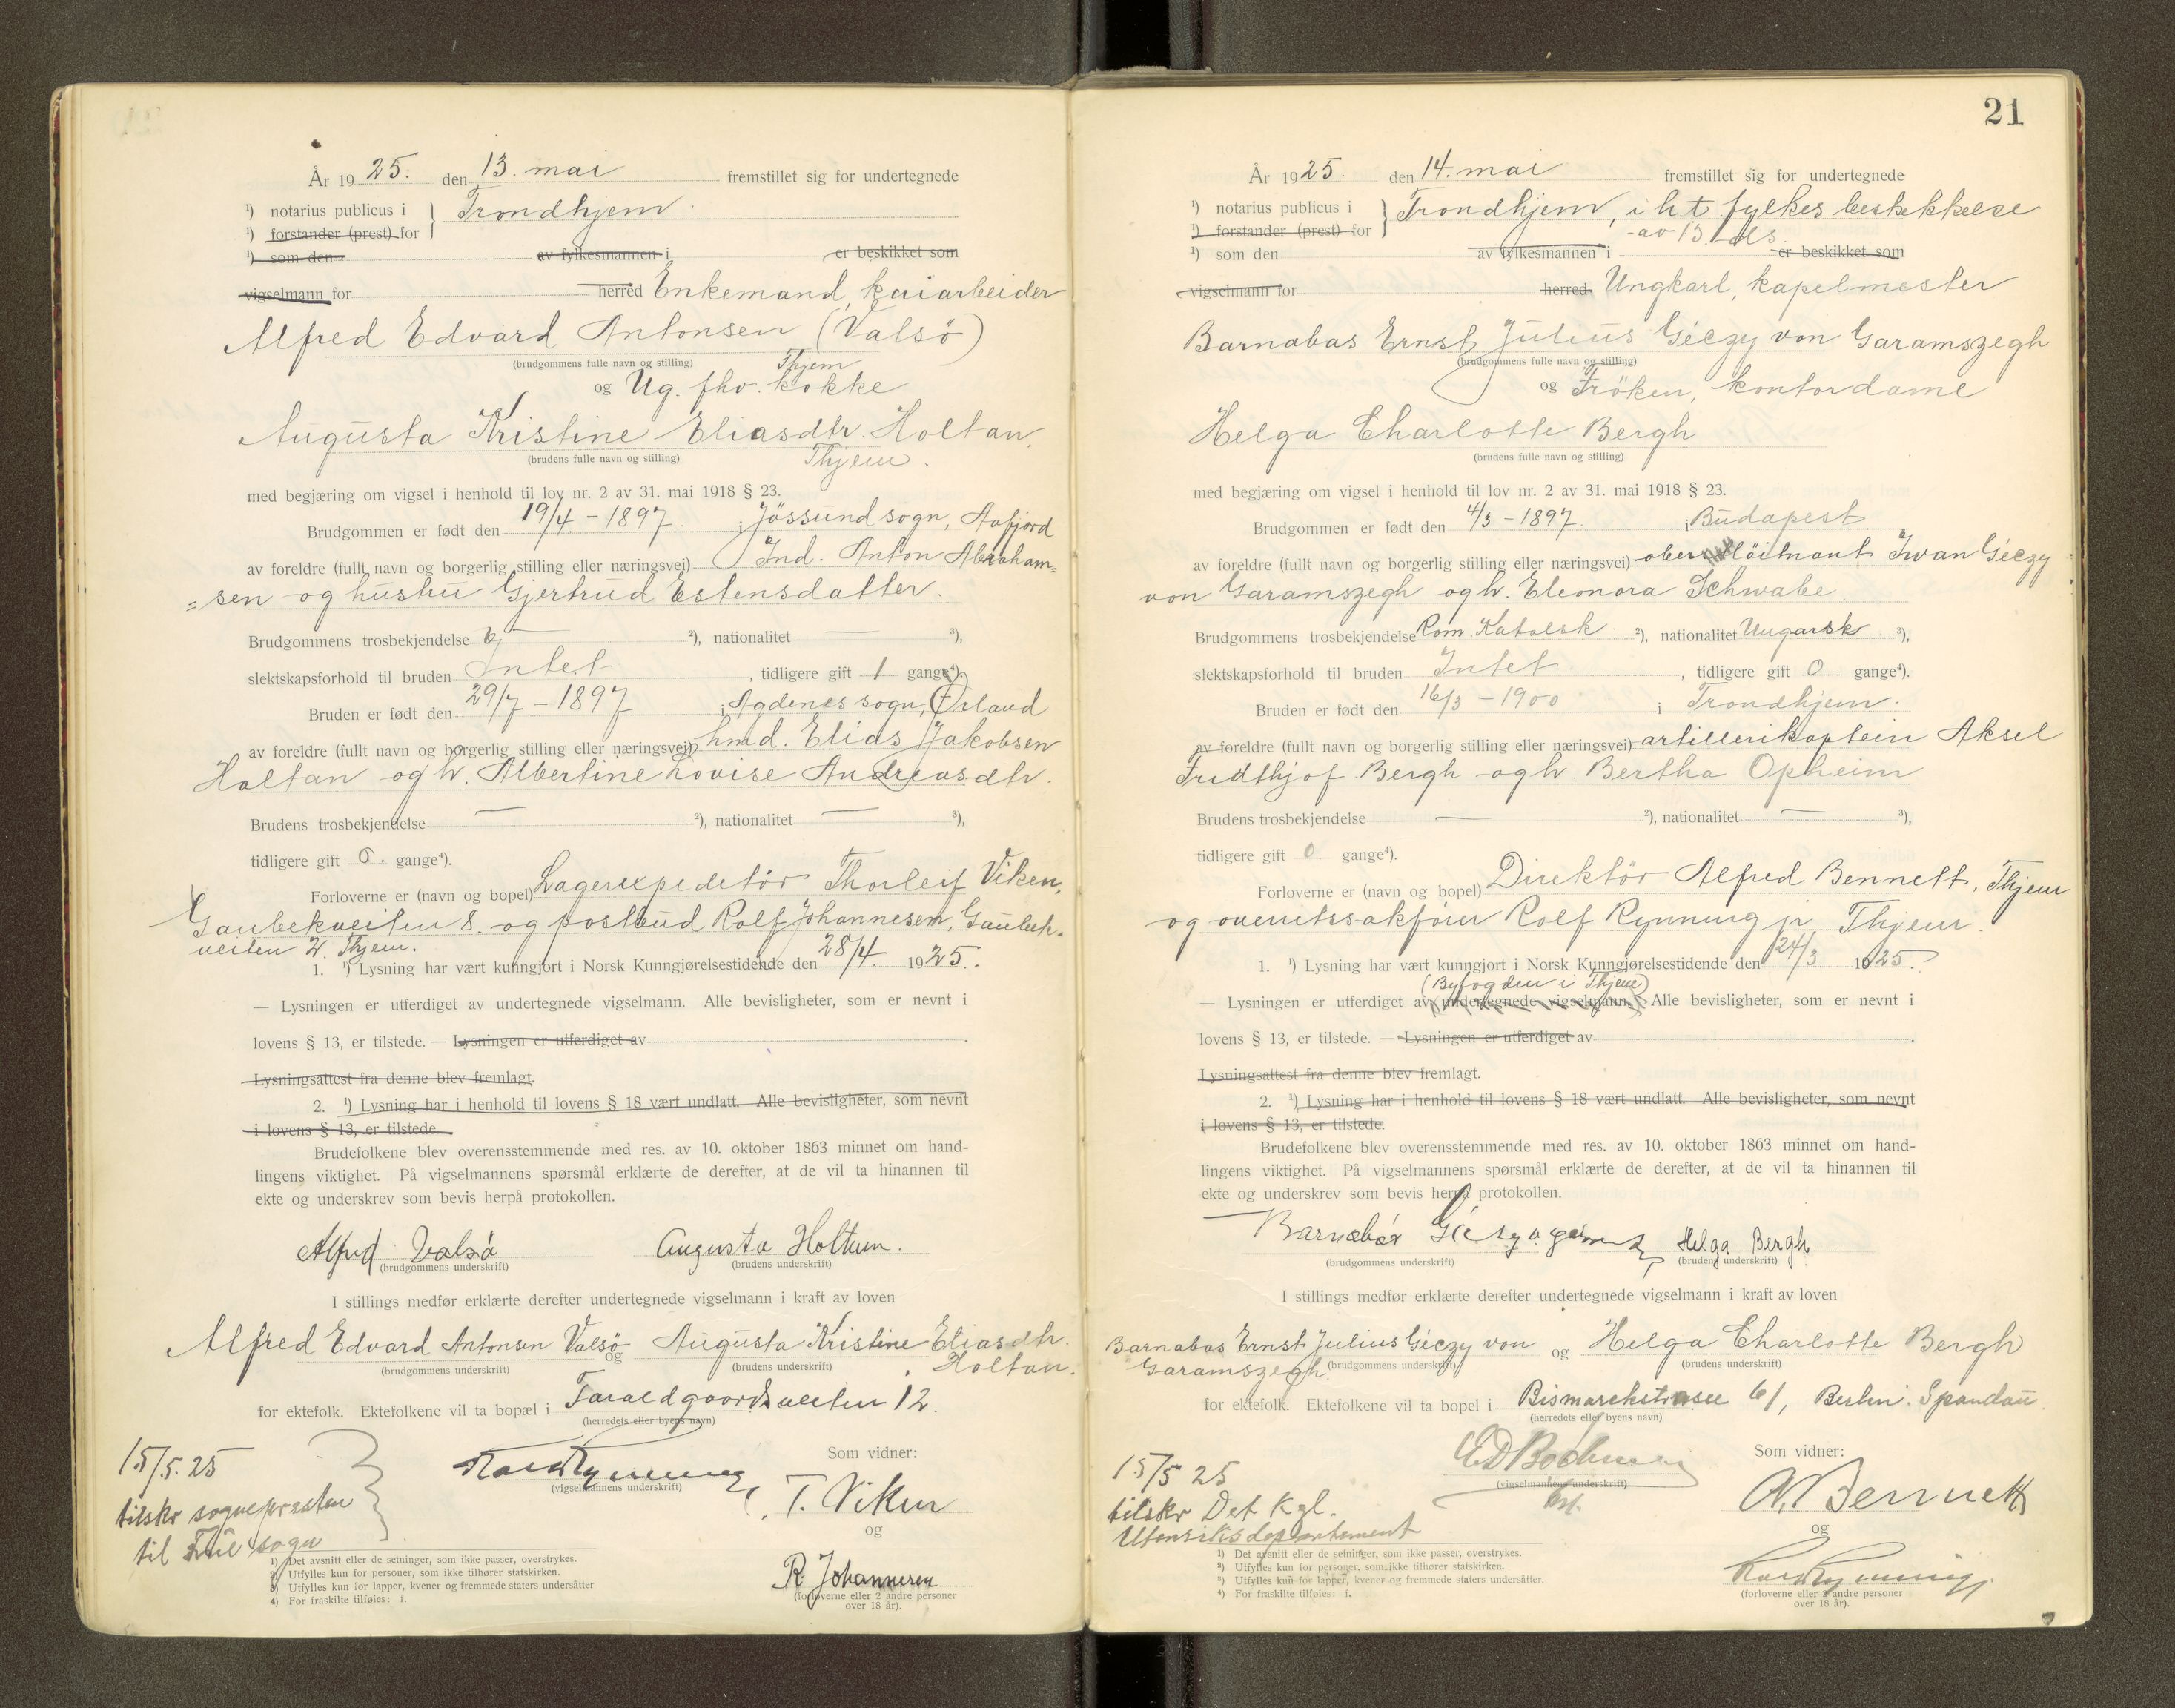 År 1925. den 13. mai fremstillet sig for undertegnede
¹) notarius publicus i } Trondhjem.
¹) forstander (prest) for
¹) som den av fylkesmannen i er beskikket som
vigselmann for herred Enkemand, kaiarbeider
Alfred Edvard Antonsen (Valsö)
(brudgommens fulle navn og stilling) Thjem
og Ug. fhv. kokke
Augusta Kristine Eliasdtr. Holtan,
(brudens fulle navn og stilling) Thjem.
med begjæring om vigsel i henhold til lov nr. 2 av 31. mai 1918 § 23.
Brudgommen er født den 19/4 - 1897 i Jössund sogn, Aafjord
av foreldre (fullt navn og borgerlig stilling eller næringsvei) Ind. Anton Abraham=
=sen og hustru Gjertrud Estensdatter.
Brudgommens trosbekjendelse ²), nationalitet — ³),
slektskapsforhold til bruden Intet, tidligere gift 1 gange⁴).
Bruden er født den 29/7 - 1897 i Agdenes sogn, Ørland
av foreldre (fullt navn og borgerlig stilling eller næringsvei) hmd. Elias Jakobsen
Holtan og h. Albertine Lovise Andreasdtr.
Brudens trosbekjendelse — ²), nationalitet — ³),
tidligere gift 0. gange⁴).
Forloverne er (navn og bopel) Lagerexpeditör Thorleif Viken,
Gaubekveiten 8. og postbud Rolf Johannesen, Gaubek-
veiten Thjem.
1. ¹) Lysning har vært kunngjort i Norsk Kunngjørelsestidende den 28/4. 1925.
— Lysningen er utferdiget av undertegnede vigselmann. Alle bevisligheter, som er nevnt i
lovens § 13, er tilstede. — Lysningen er utferdiget av
Lysningsattest fra denne blev fremlagt.
2. ¹) Lysning har i henhold til lovens § 18 vært undlatt. Alle bevisligheter, som nevnt
i lovens § 13, er tilstede.
Brudefolkene blev overensstemmende med res. av 10. oktober 1863 minnet om hand-
lingens viktighet. På vigselmannens spørsmål erklærte de derefter, at de vil ta hinannen til
ekte og underskrev som bevis herpå protokollen.
Alfred Valsö Augusta Holtan.
(brudgommens underskrift) (brudens underskrift)
I stillings medfør erklærte derefter undertegnede vigselmann i kraft av loven
Alfred Edvard Antonsen Valsö og Augusta Kristine Eliasdtr.
(brudgommens underskrift) (brudens underskrift) Holtan.
for ektefolk. Ektefolkene vil ta bopæl i Taraldgaardsveiten 12.
(herredets eller byens navn)
15/5.25
tilskr sognepresten
til sogn
(vigselmannens underskrift)
Som vidner:
T. Viken
og
R Johannesen
(forloverne eller 2 andre personer
over 18 år).
1) Det avsnitt eller de setninger, som ikke passer, overstrykes.
2) Utfylles kun for personer, som ikke tilhører statskirken.
3) Utfylles kun for lapper, kvener og fremmede staters undersåtter
4) For fraskilte tilføies: f.
21
År 1925. den 14. mai fremstillet sig for undertegnede
¹) notarius publicus i } Trondhjem, i h t fylkes beskikkelse
¹) forstander (prest) for av 13. ds.
¹) som den av fylkesmannen i er beskikket som
vigselmann for herred Ungkarl, kapelmester
Barnabas Ernst Julius Géczy von Garamszegh
(brudgommens fulle navn og stilling)
og Fröken, kontordame
Helga Charlotte Bergh
(brudens fulle navn og stilling)
med begjæring om vigsel i henhold til lov nr. 2 av 31. mai 1918 § 23.
Brudgommen er født den 4/3 - 1897. i Budapest
av foreldre (fullt navn og borgerlig stilling eller næringsvei) oberstlöitnant Iwan Géczy
von Garamszegh og h. Eleonora Schwabe.
Brudgommens trosbekjendelse Rom. Katolsk ²), nationalitet Ungarsk ³),
slektskapsforhold til bruden Intet, tidligere gift 0 gange⁴).
Bruden er født den 16/3 - 1900 i Trondhjem.
av foreldre (fullt navn og borgerlig stilling eller næringsvei) artillerikaptein Aksel
Fridthjof Bergh og h. Bertha Opheim
Brudens trosbekjendelse — ²), nationalitet — ³),
tidligere gift 0 gange⁴).
Forloverne er (navn og bopel) Direktör Alfred Bennett, Thjem
og overretssakförer Rolf Rynning jr Thjem.
1. ¹) Lysning har vært kunngjort i Norsk Kunngjørelsestidende den 24/3 1925.
(Byfogden i Thjem)
— Lysningen er utferdiget av undertegnede vigselmann. Alle bevisligheter, som er nevnt i
lovens § 13, er tilstede. — Lysningen er utferdiget av
Lysningsattest fra denne blev fremlagt.
2. ¹) Lysning har i henhold til lovens § 18 vært undlatt. Alle bevisligheter, som nevnt
i lovens § 13, er tilstede.
Brudefolkene blev overensstemmende med res. av 10. oktober 1863 minnet om hand-
lingens viktighet. På vigselmannens spørsmål erklærte de derefter, at de vil ta hinannen til
ekte og underskrev som bevis herpå protokollen.
Barnabás Géczy Helga Bergh
(brudgommens underskrift) (brudens underskrift)
I stillings medfør erklærte derefter undertegnede vigselmann i kraft av loven
Barnabas Ernst Julius Géczy von og Helga Charlotte Bergh
Garamszegh (brudgommens underskrift) (brudens underskrift)
for ektefolk. Ektefolkene vil ta bopel i Bismarckstrasse 61, Berlin. Spandau
(herredets eller byens navn)
15/5 25
tilskr Det Kgl.
Utenriksdepartement
(vigselmannens underskrift)
Som vidner:
A. Bennett
og
(forloverne eller 2 andre personer
over 18 år).
¹) Det avsnitt eller de setninger, som ikke passer, overstrykes.
²) Utfylles kun for personer, som ikke tilhører statskirken.
³) Utfylles kun for lapper, kvener og fremmede staters undersåtter.
⁴) For fraskilte tilføies: f.